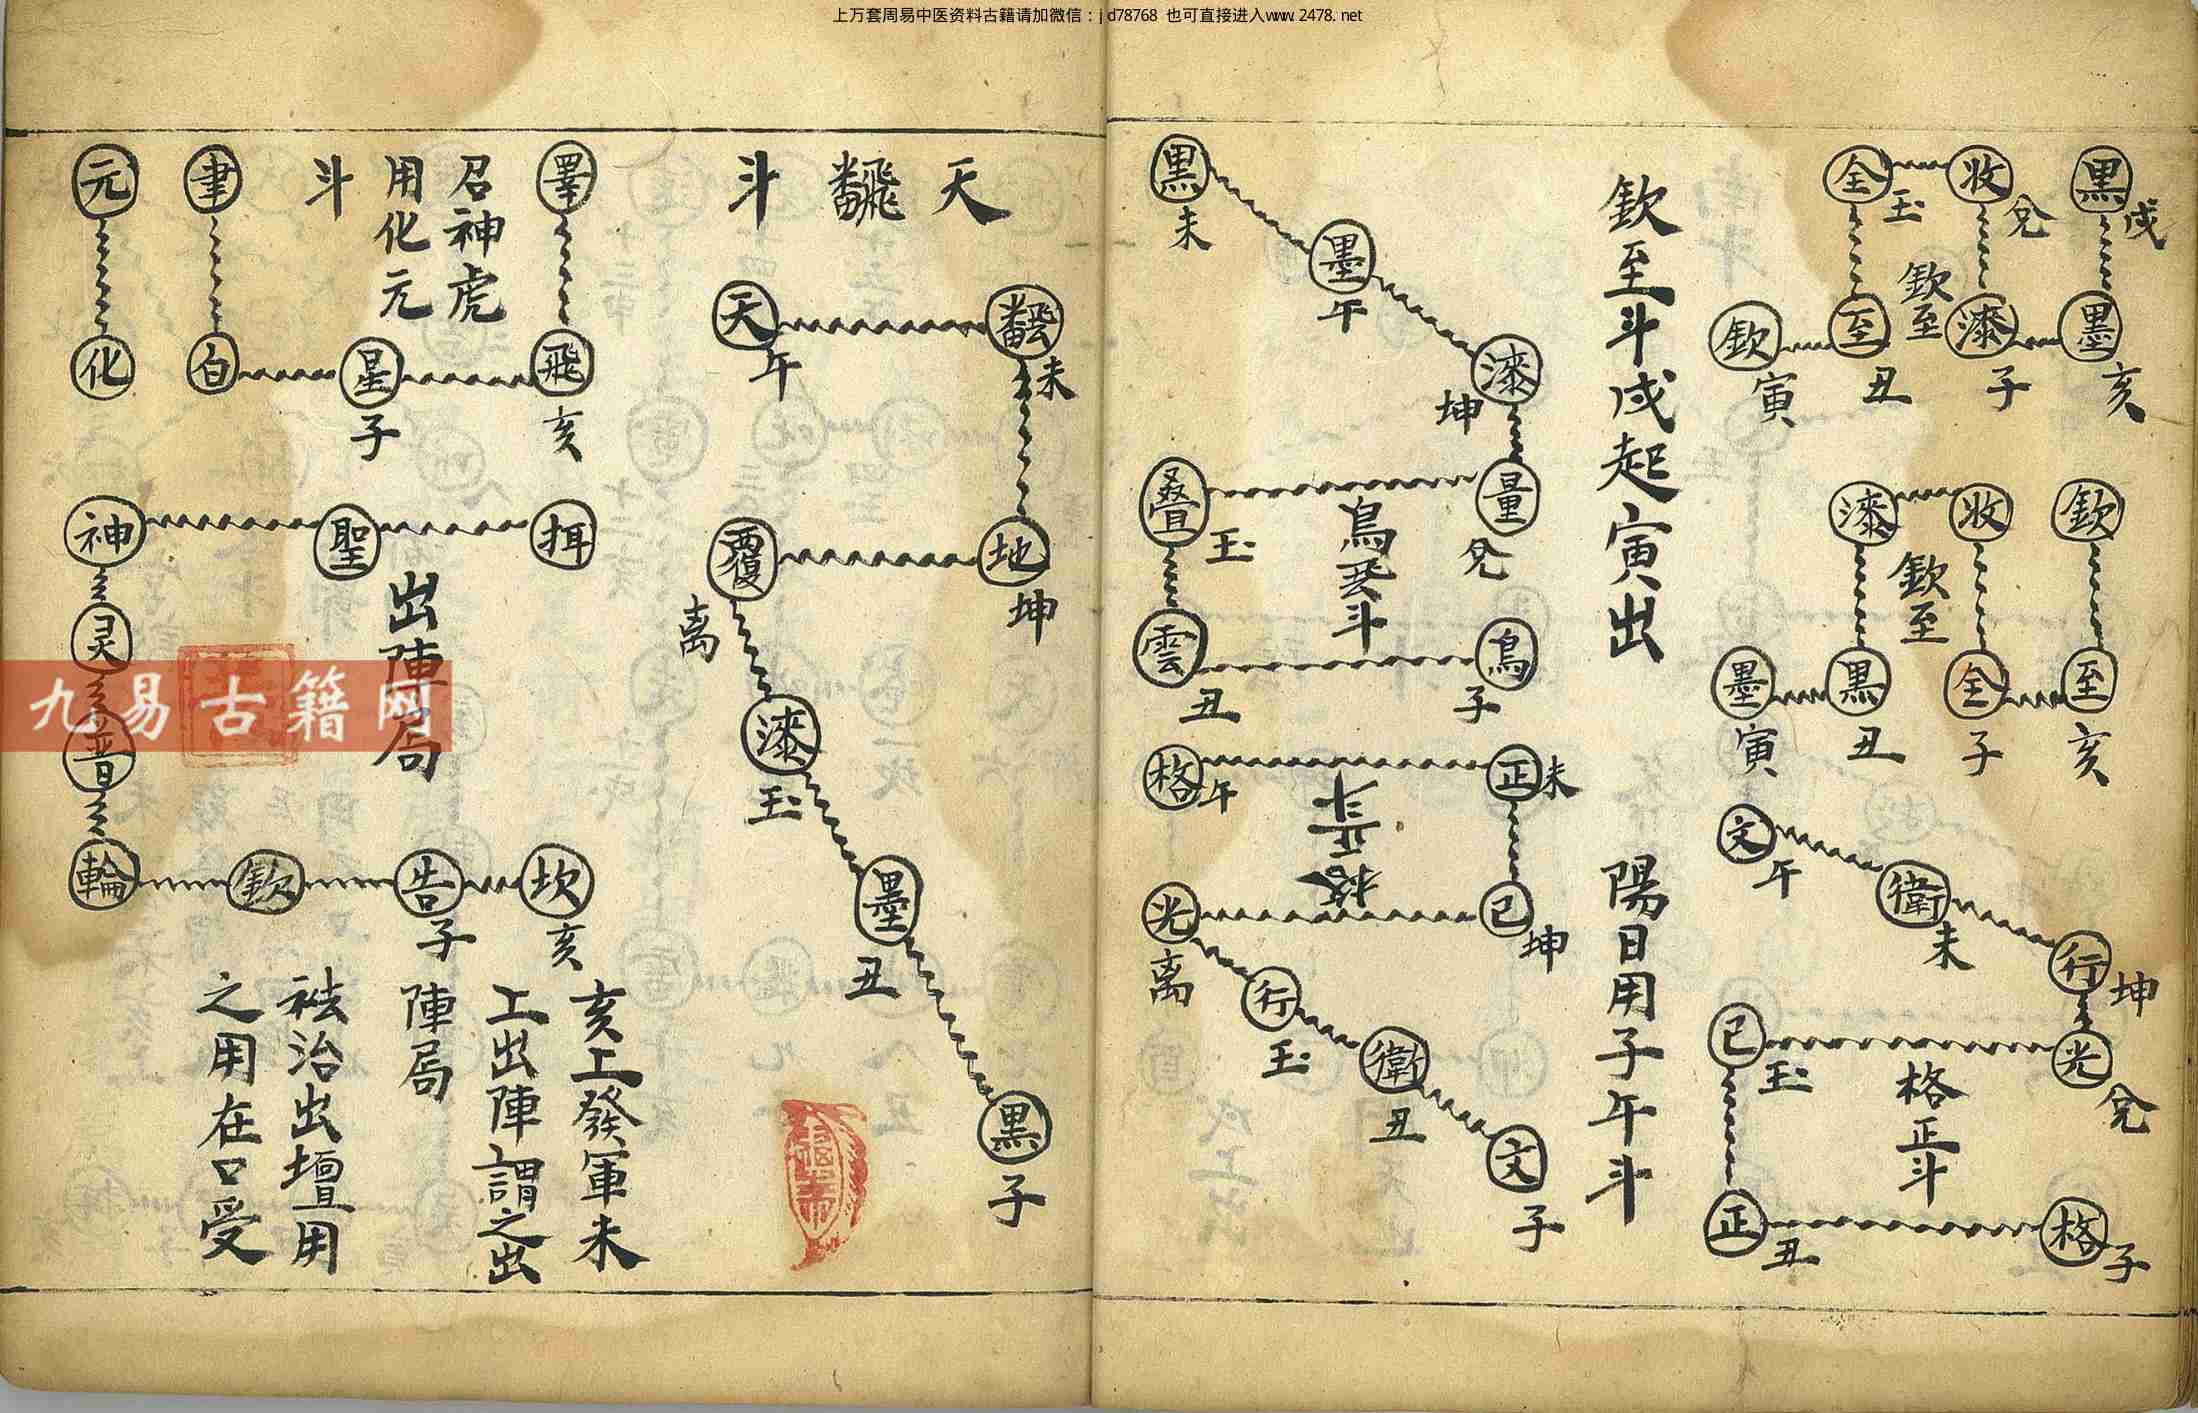 上万套周易中医资料古籍请加微信：jd78768 也可直接进入www.2478.net
黒 戌
墨 亥
收 兌
漆 子
全 玉
至 丑
欽 寅
欽至
欽
至 亥
收
全 子
漆
黒 丑
墨 寅
欽至
文 午
衛 未
行 坤
光 兌
已 玉
正 丑
格 子
格正斗
欽至斗戌起寅出
陽日用子午斗
黒 未
墨 午
漆 坤
量 兌
叠 玉
雲 丑
鳥 子
格 午
正 未
已 坤
光 离
行 玉
衛 丑
文 子
格正斗
天
斗
天 午
未
地 坤
覆 离
漆 玉
墨 丑
黒 子
飛 亥
星 子
白
聿
召神虎
用化元
斗
元
化
聖
神
灵
晋
輪
欽
告 子
坎 亥
出陣局
亥上發軍未
上出陣謂之出
陣局
祛治出壇用
之用在口受
九易古籍网